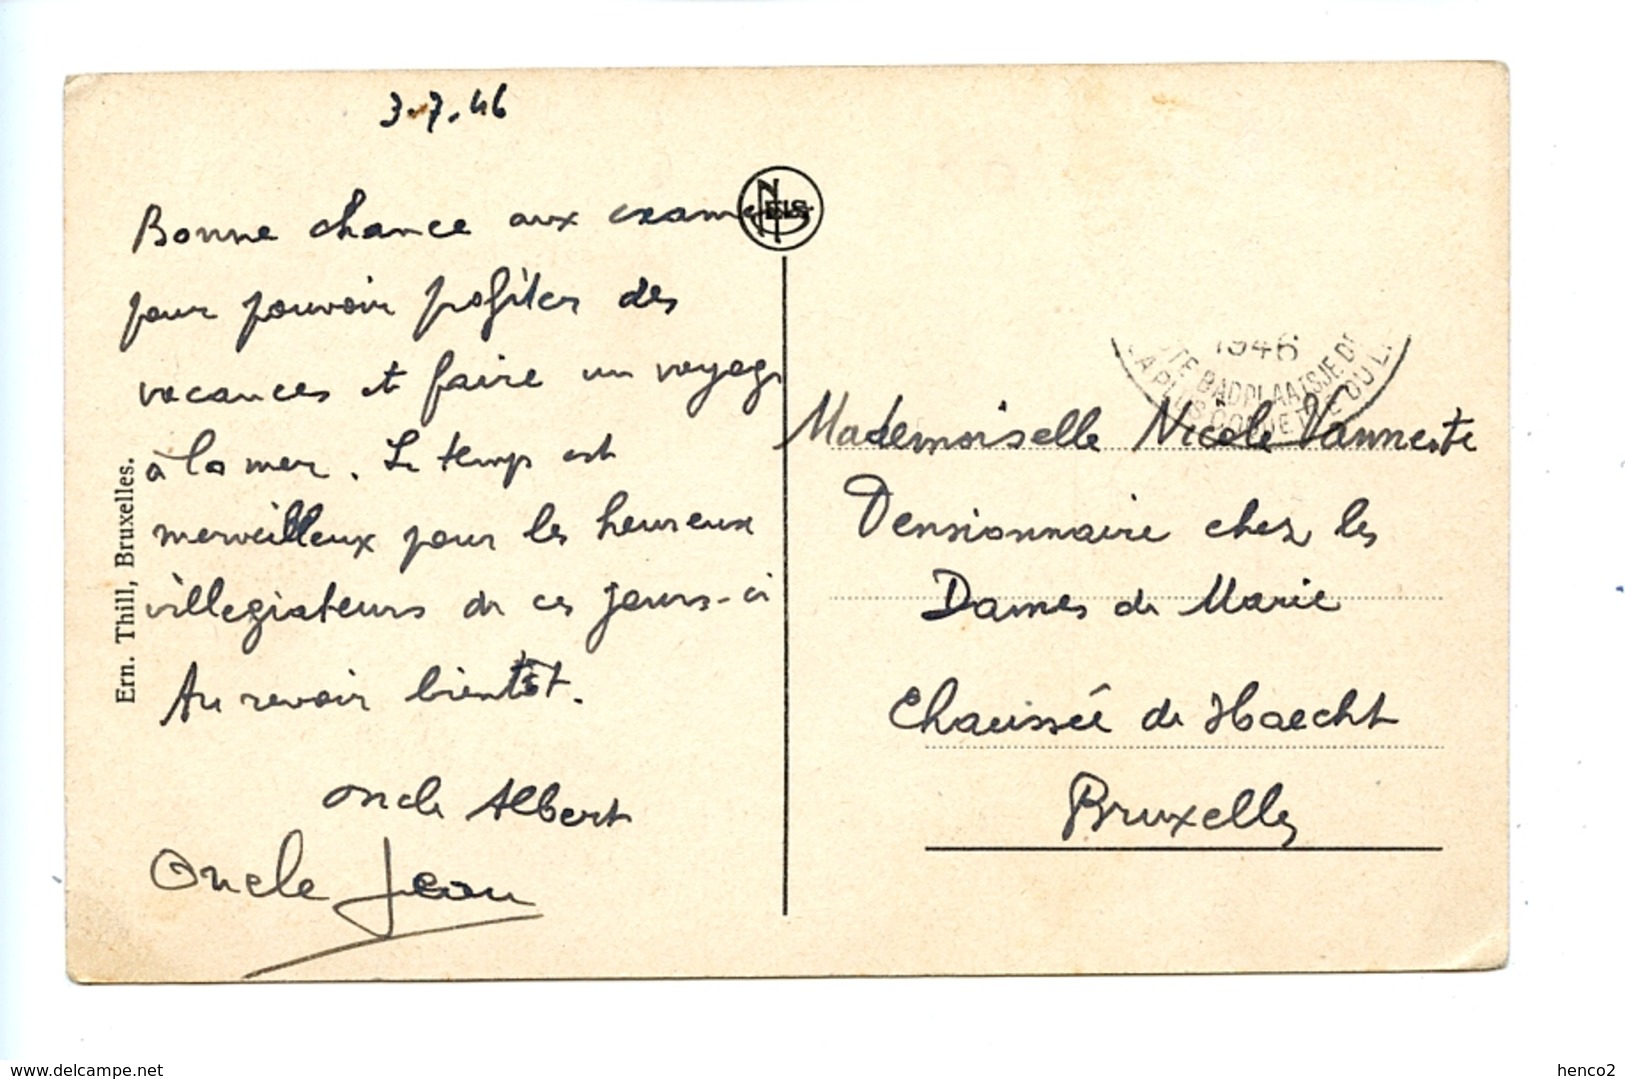 3.7.46
Bonne chance aux examens
pour pouvoir profiter des
vacances et faire un voyage
à la mer. Le temps est
merveilleux pour les heureux
villegiateurs de ces jours-ci
Au revoir bientôt.
Oncle Albert
Oncle Jean
Ern. Thill, Bruxelles.
NELS
1946
BADPLAATSJE DE
LA PLUS COQUETTE DU LI
Mademoiselle Nicole Vanneste
Pensionnaire chez les
Dames de Marie
Chaussée de Haecht
Bruxelles
www.delcampe.net
henco2